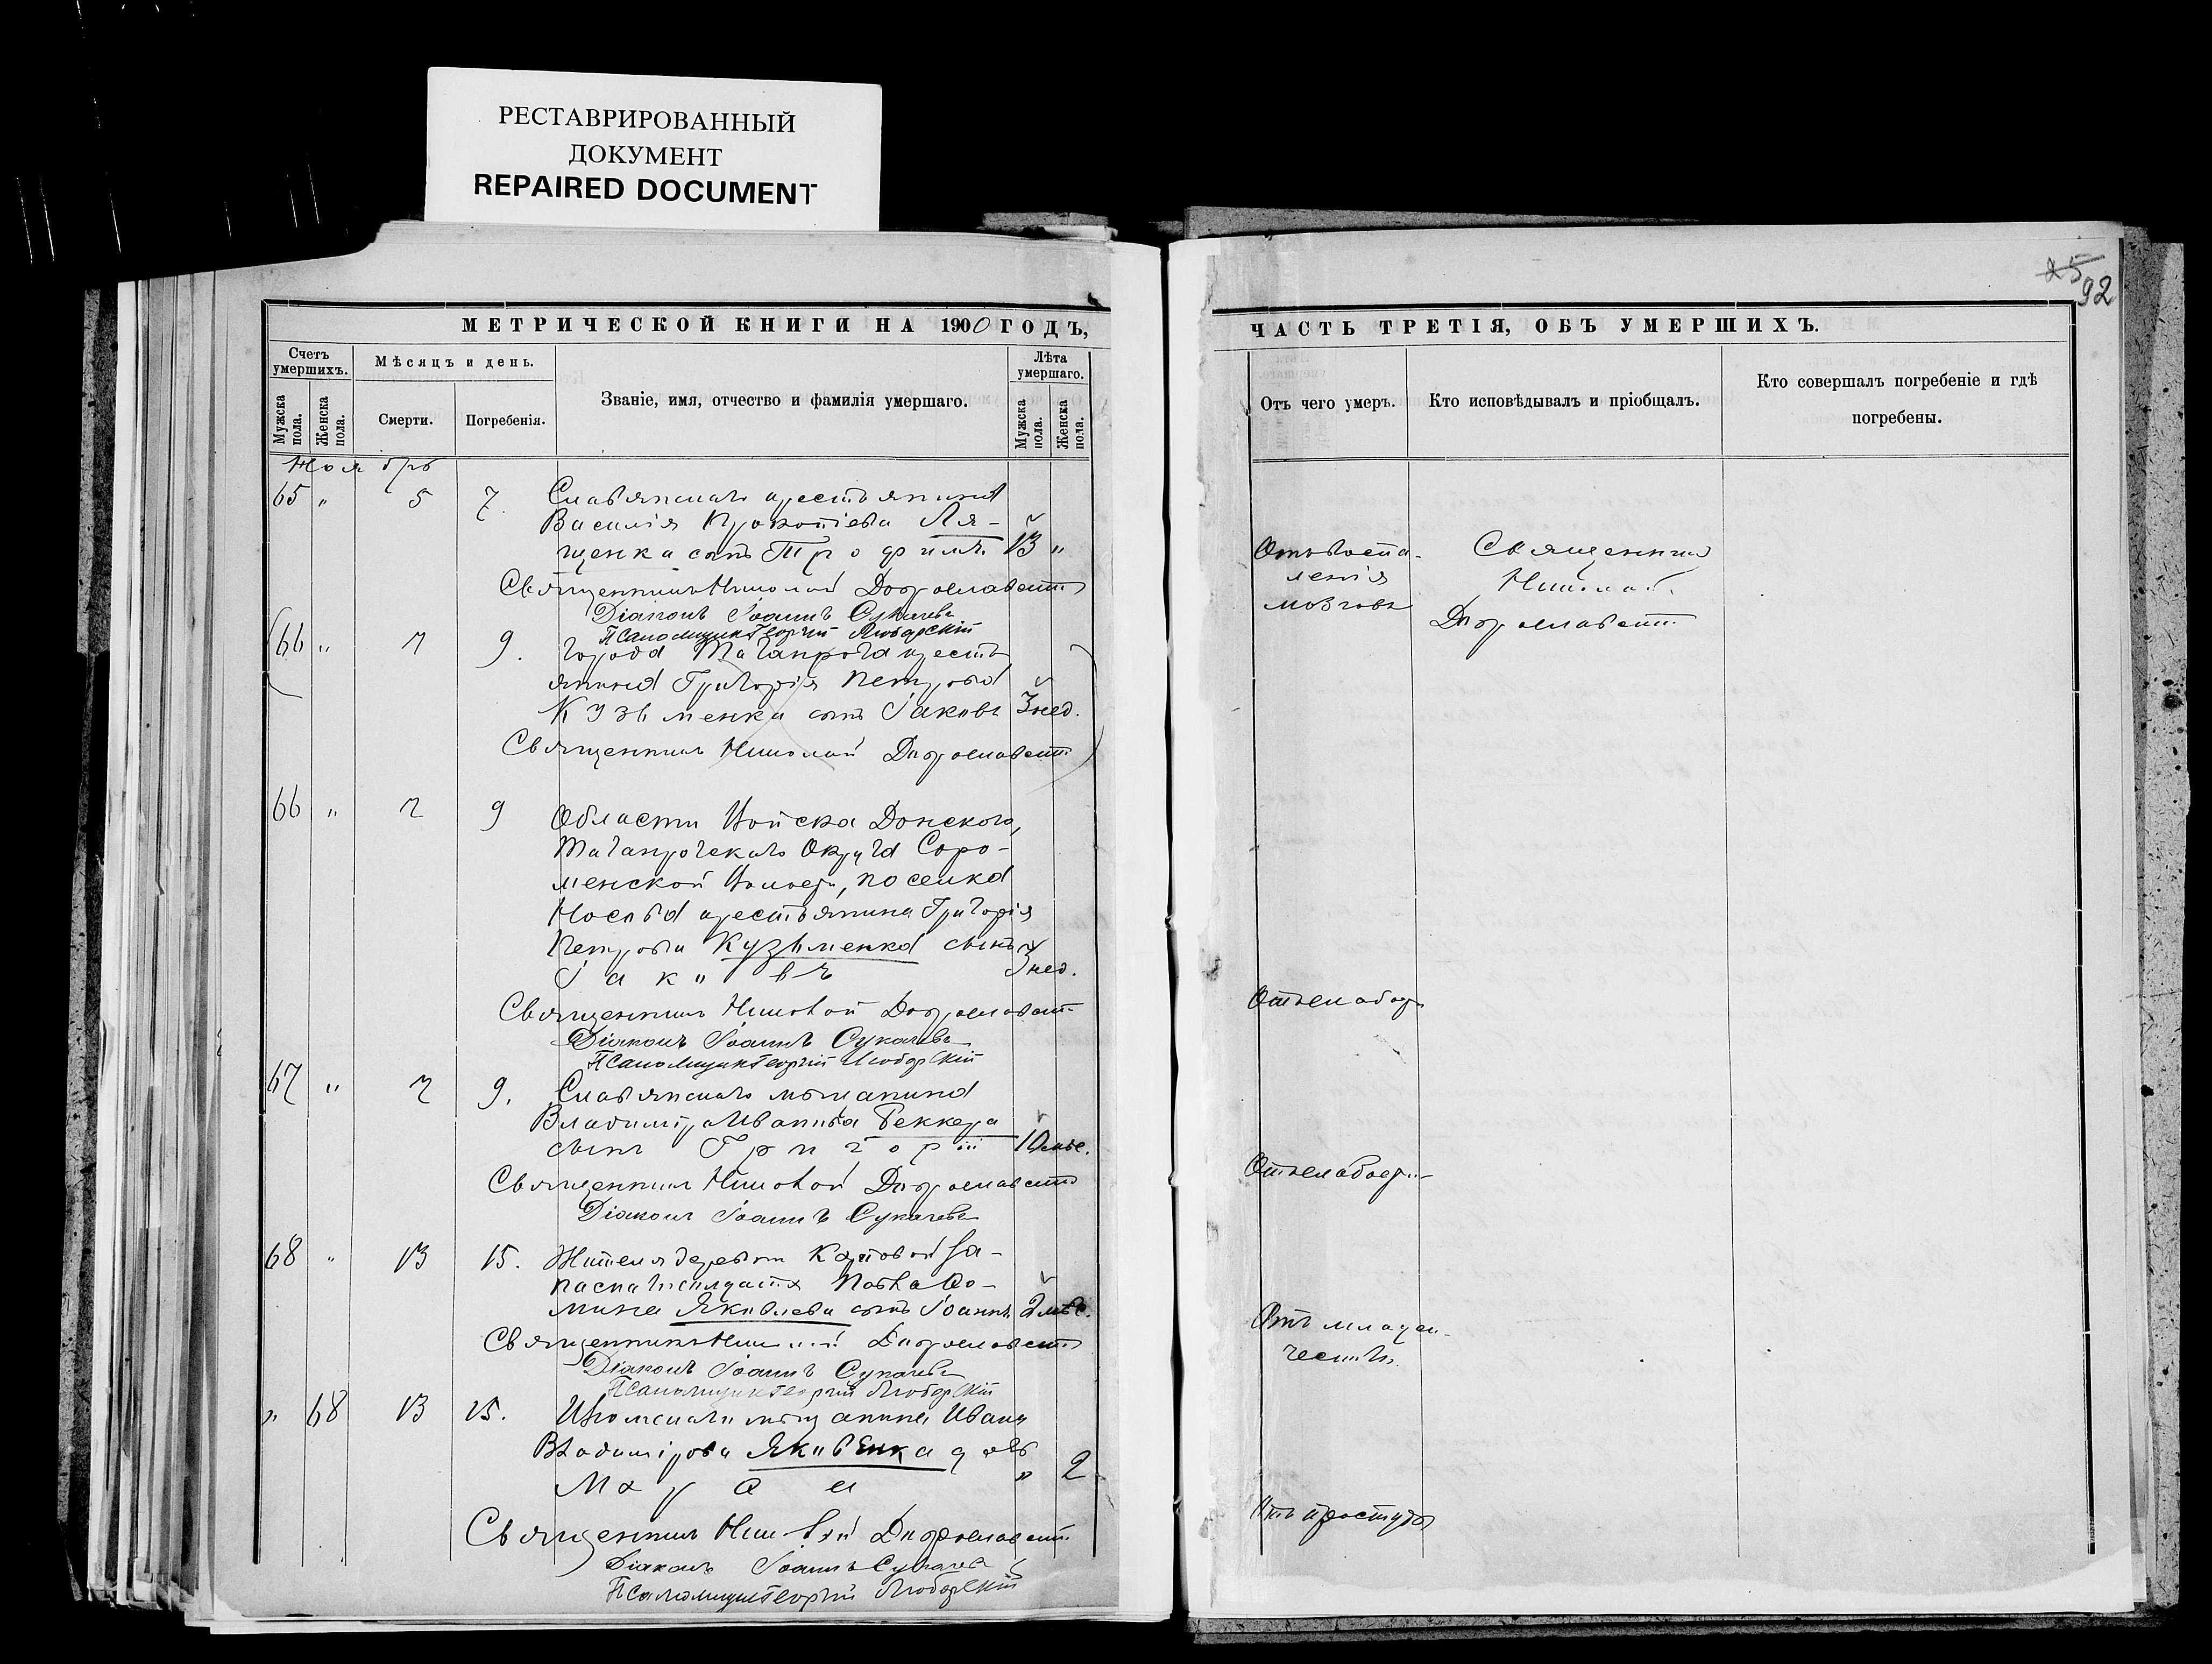 РЕСТАВРИРОВАННЫЙ
ДОКУМЕНТ
REPAIRED DOCUMENT
25
92
МЕТРИЧЕСКОЙ КНИГИ НА 1900 ГОДЪ,
Счетъ умершихъ.
Мужска пола.
Женска пола.
Мѣсяцъ и день.
Смерти.
Погребенія.
Званіе, имя, отчество и фамилія умершаго.
Лѣта умершаго.
Мужска пола.
Женска пола.
Ноябрь
65 " 5 7. Славянскаго крестьянина
Василія Прокопіева Ля-
щенка сынъ Трофимъ. 13 "
Священникъ Николай Доброславскій
Діаконъ Іоаннъ Сукачевъ
Псаломщикъ Георгій Любарскій
66 " 7 9. города Таганрога кресть
янина Григорія Петрова
Кузьменка сынъ Іаковъ 3 нед.
Священникъ Николай Доброславскій
66 " 7 9 Области Войска Донского,
Таганрогскаго Округа
поселка
Носова крестьянина Григорія
Петрова Кузьменка сынъ
Іаковъ 3 нед.
Священникъ Николай Доброславскій
Діаконъ Іоаннъ Сукачевъ
Псаломщикъ Георгій Любарскій
67 " 7 9. Славянскаго мѣщанина
Владиміра Иванова Беккера
сынъ Григорій 10 мѣс.
Священникъ Николай Доброславскій
Діаконъ Іоаннъ Сукачевъ
68 " 13 15. Жителя деревни Карповой за-
паснаго солдата Павла Ѳо-
мина Яковлева сынъ Іоаннъ 2 мѣс.
Священникъ Николай Доброславскій
Діаконъ Іоаннъ Сукачевъ
Псаломщикъ Георгій Любарскій
" 68 13 15. Изюмскаго мѣщанина Ивана
Владимірова Яковенка дочь
Марѳа " 2
Священникъ Николай Доброславскій
Діаконъ Іоаннъ Сукачевъ
Псаломщикъ Георгій Любарскій
ЧАСТЬ ТРЕТІЯ, ОБЪ УМЕРШИХЪ.
Отъ чего умеръ.
Кто исповѣдывалъ и пріобщалъ.
Кто совершалъ погребеніе и гдѣ
погребены.
Отъ воспа-
ленія
мозгова
Священникъ
Николай
Доброславскій
Отъ слабости
Отъ слабости
Отъ младен-
чества
Отъ простуды